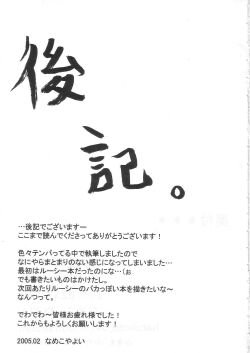 後記。
…後記でございますー
ここまで読んでくださってありがとうございます！
色々テンパってる中で執筆しましたので
なにやらまとまりのない感じになってしまいました…
最初はルーシー本だったのにな…（ぉ
でも書きたいものはかけたし。
次回あたりルーシーのバカっぽい本を描きたいな～
なんつって。
でわでわ～皆様お疲れ様でした！
これからもよろしくお願いします！
2005.02 なめこやよい